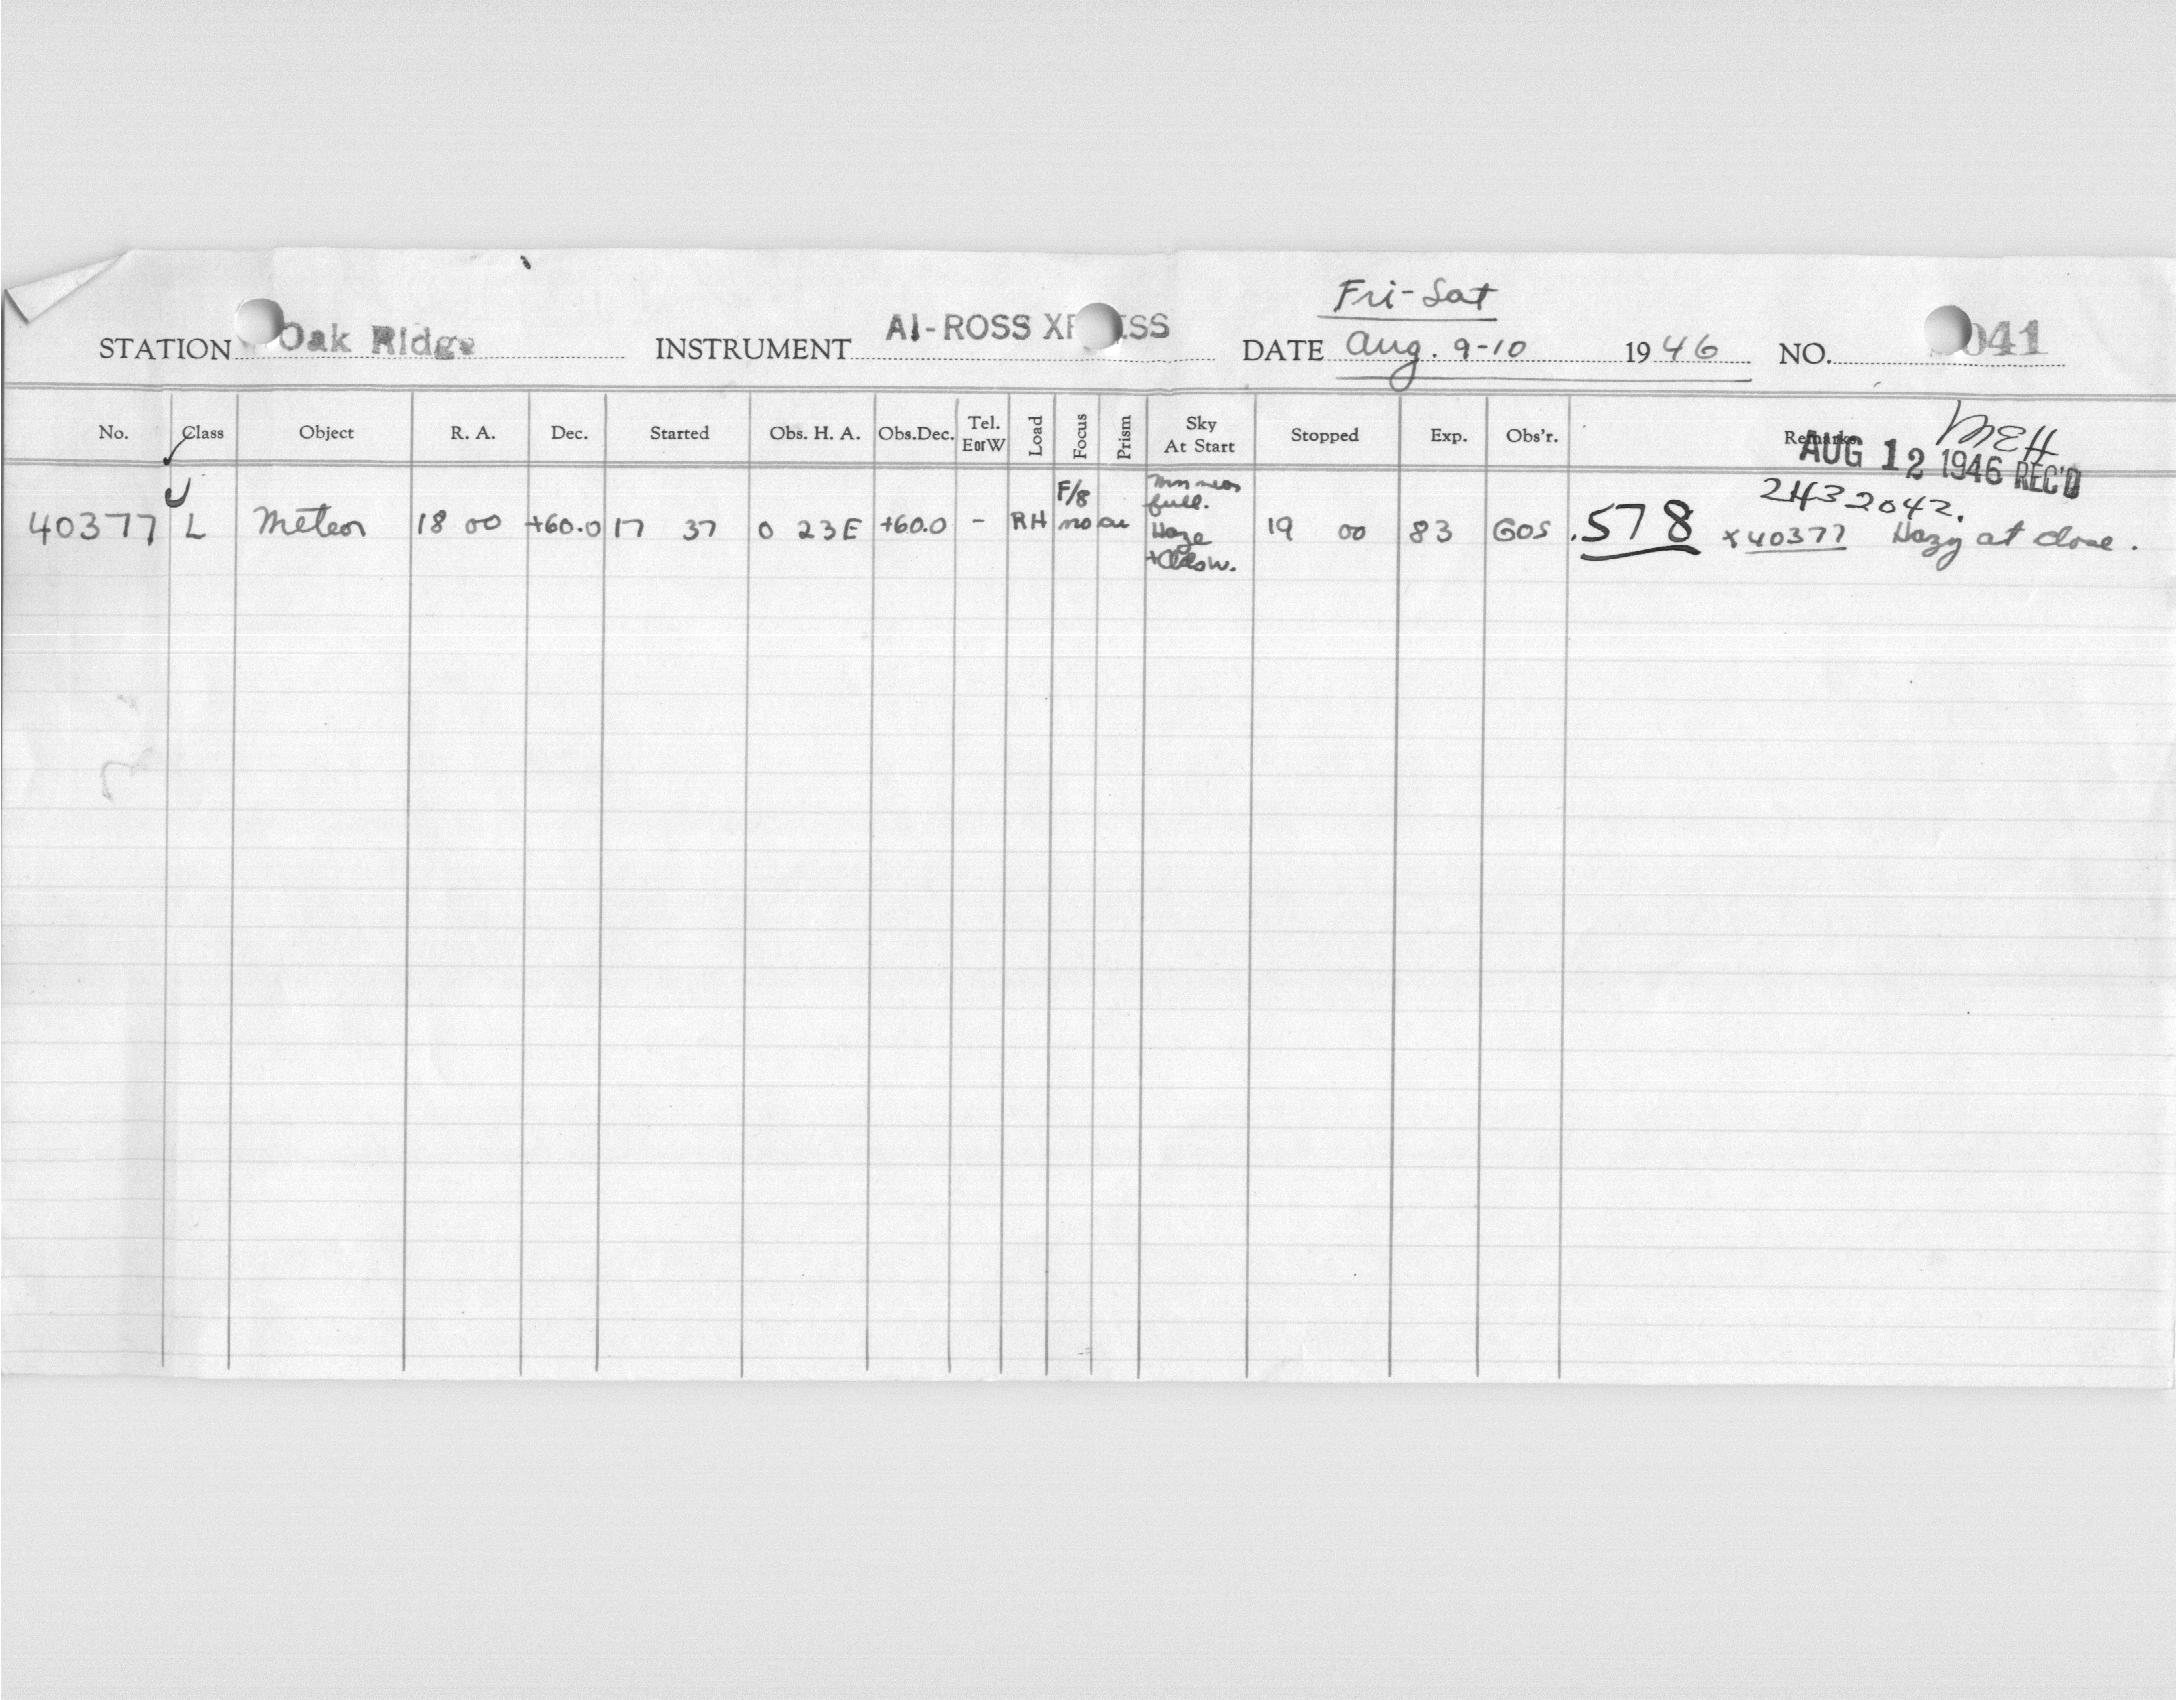 Fri-Sat
STATION Oak Ridge INSTRUMENT AI-ROSS XP ESS DATE Aug. 9-10 1946 NO. 041
No. Class Object R. A. Dec. Started Obs. H. A. Obs.Dec. Tel. E or W Load Focus Prism Sky At Start Stopped Exp. Obs'r. Remarks
MEH
AUG 12 1946 REC'D
2432042.
40377 L Meteor 18 00 +60.0 17 37 0 23E +60.0 - RH F/8 no full. Haze 19 00 83 GOS .578 x 40377 Hazy at close.